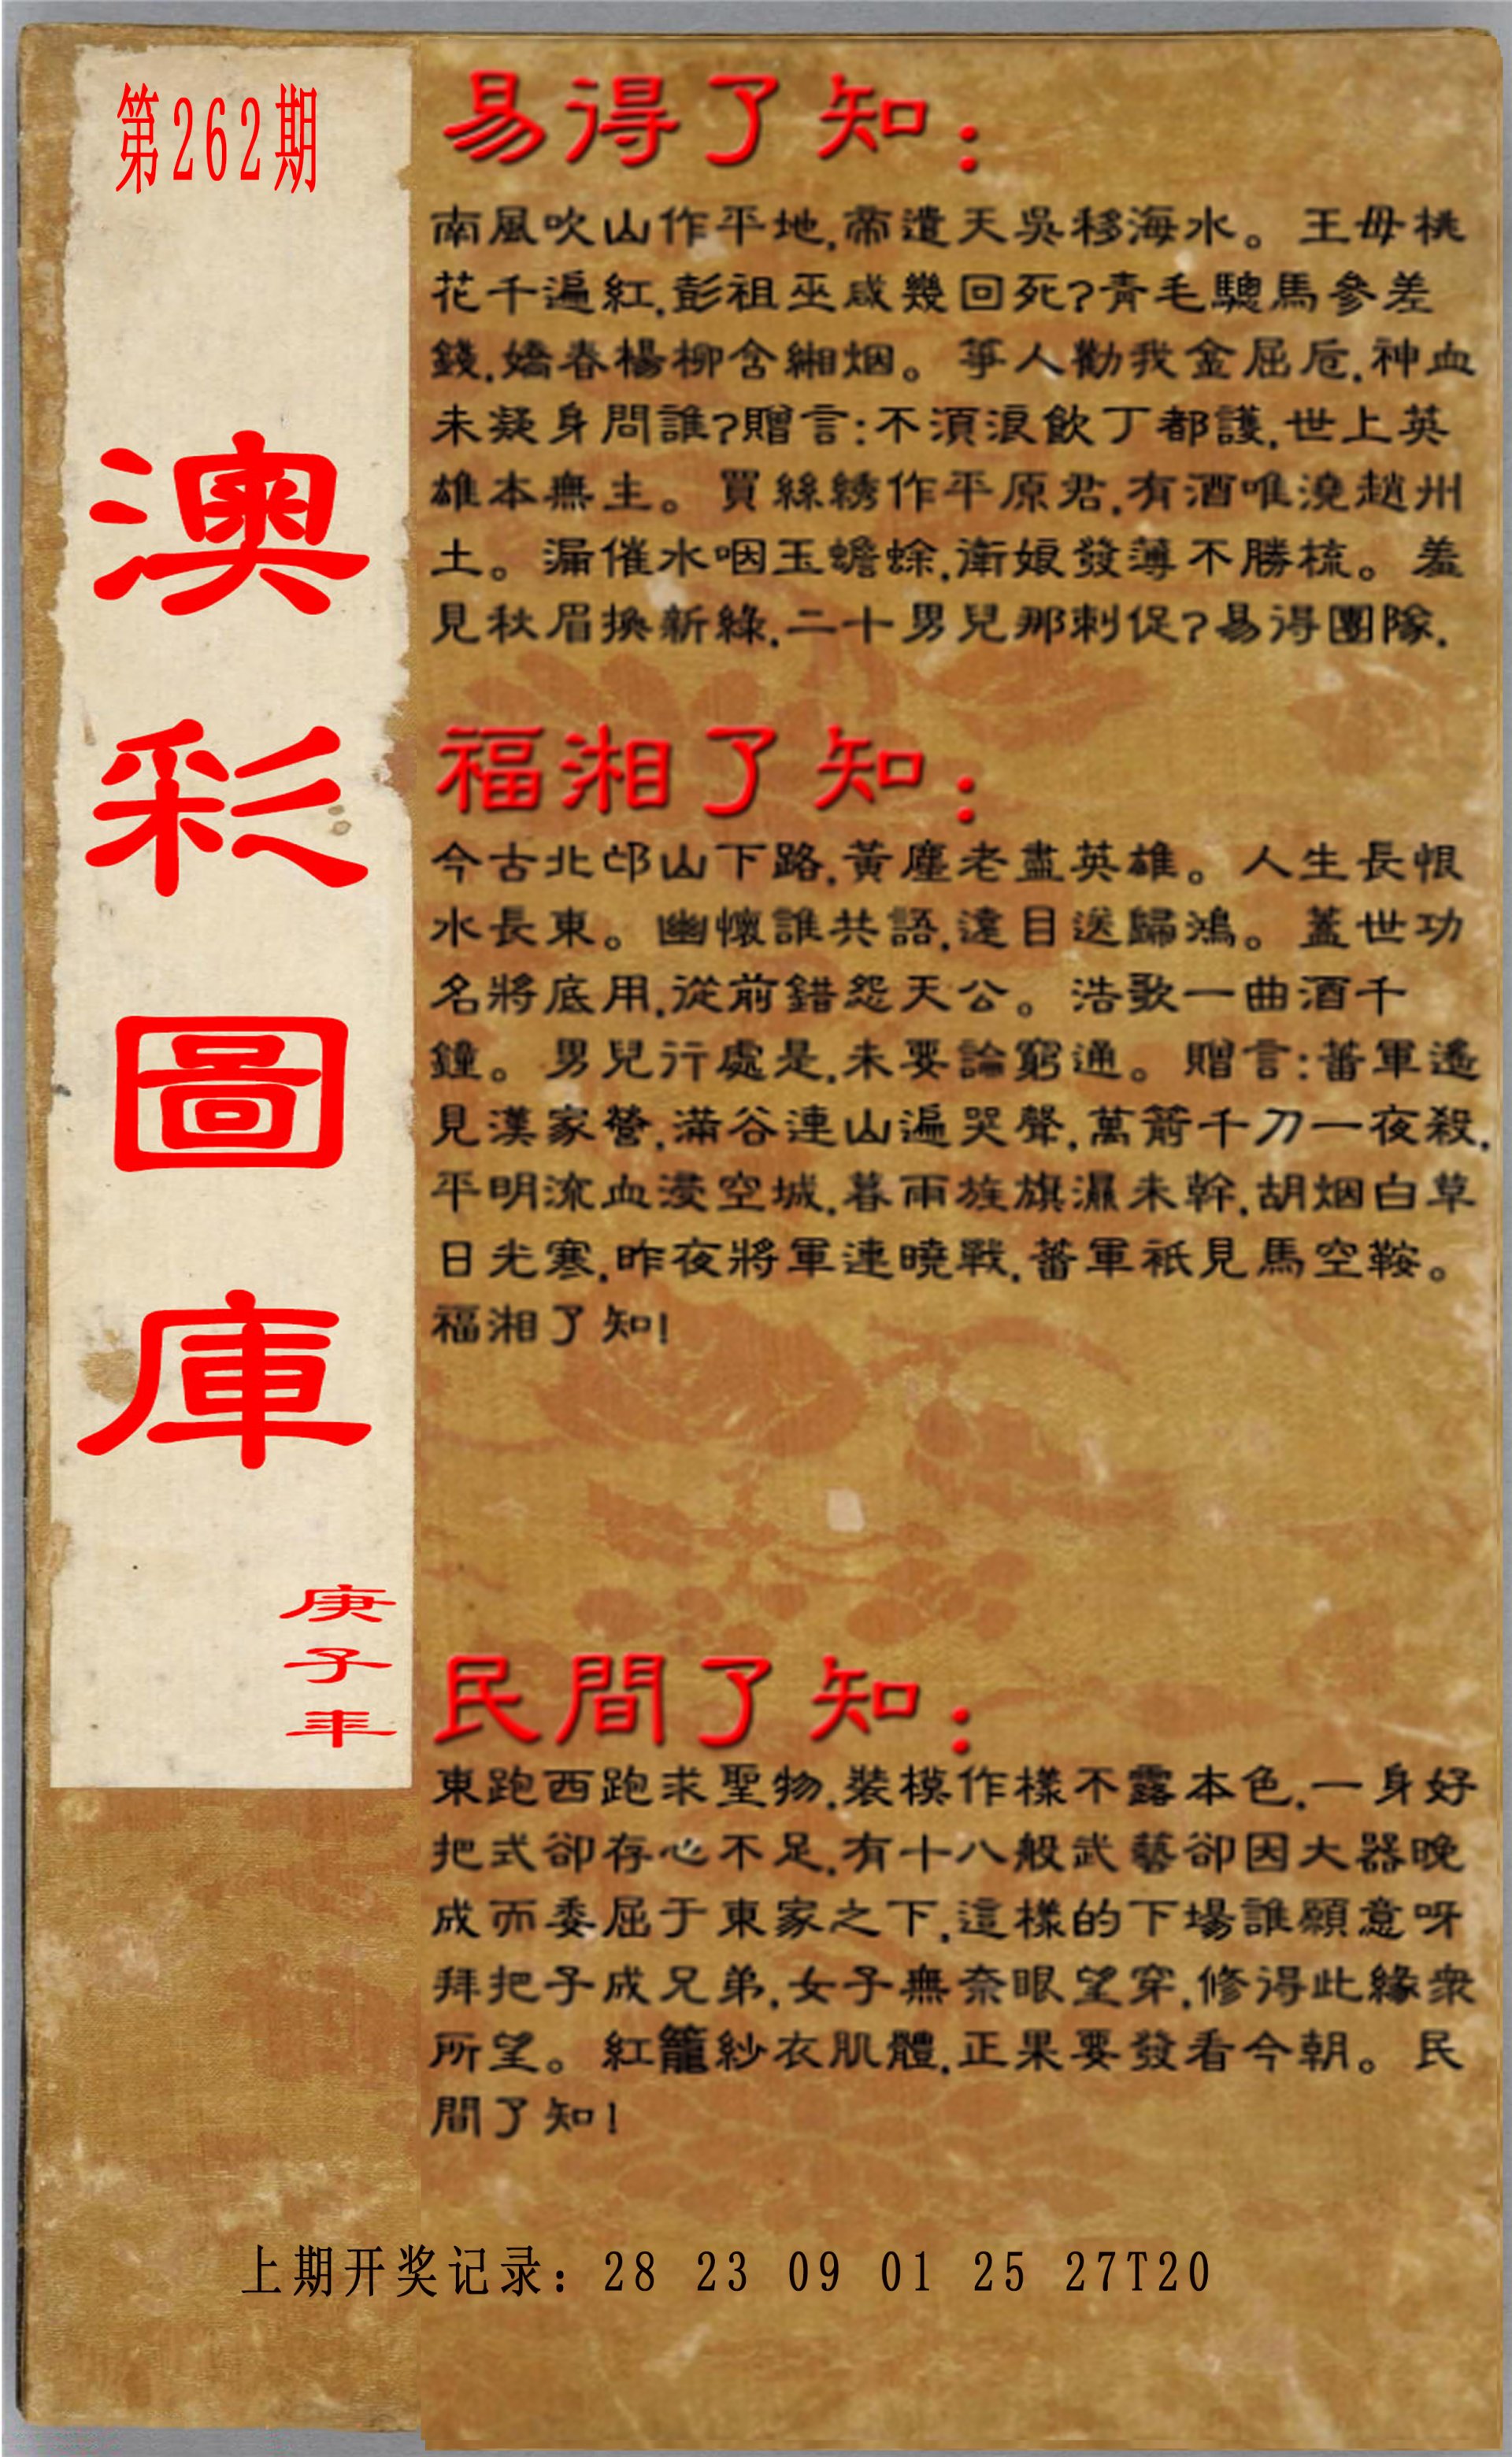 第262期
澳彩圖庫
庚子年
易得了知：
南風吹山作平地,帝遣天吳移海水。王母桃
花千遍紅,彭祖巫咸幾回死?青毛驄馬參差
錢,嬌春楊柳含緗烟。箏人勸我金屈卮,神血
未凝身問誰?贈言:不須浪飲丁都護,世上英
雄本無主。買絲綉作平原君,有酒唯澆趙州
土。漏催水咽玉蟾蜍,衛娘發薄不勝梳。羞
見秋眉換新綠,二十男兒那刺促?易得團隊.
福湘了知：
今古北邙山下路,黃塵老盡英雄。人生長恨
水長東。幽懷誰共語,遠目送歸鴻。蓋世功
名將底用,從前錯怨天公。浩歌一曲酒千
鐘。男兒行處是,未要論窮通。贈言:蕃軍遙
見漢家營,滿谷連山遍哭聲,萬箭千刀一夜殺,
平明流血浸空城,暮雨旌旗濕未幹,胡烟白草
日光寒,昨夜將軍連曉戰,蕃軍衹見馬空鞍。
福湘了知!
民間了知：
東跑西跑求聖物,裝模作樣不露本色,一身好
把式卻存心不足,有十八般武藝卻因大器晚
成而委屈于東家之下,這樣的下場誰願意呀
拜把子成兄弟,女子無奈眼望穿,修得此緣衆
所望。紅籠紗衣肌體,正果要發看今朝。民
間了知!
上期开奖记录：28 23 09 01 25 27T20